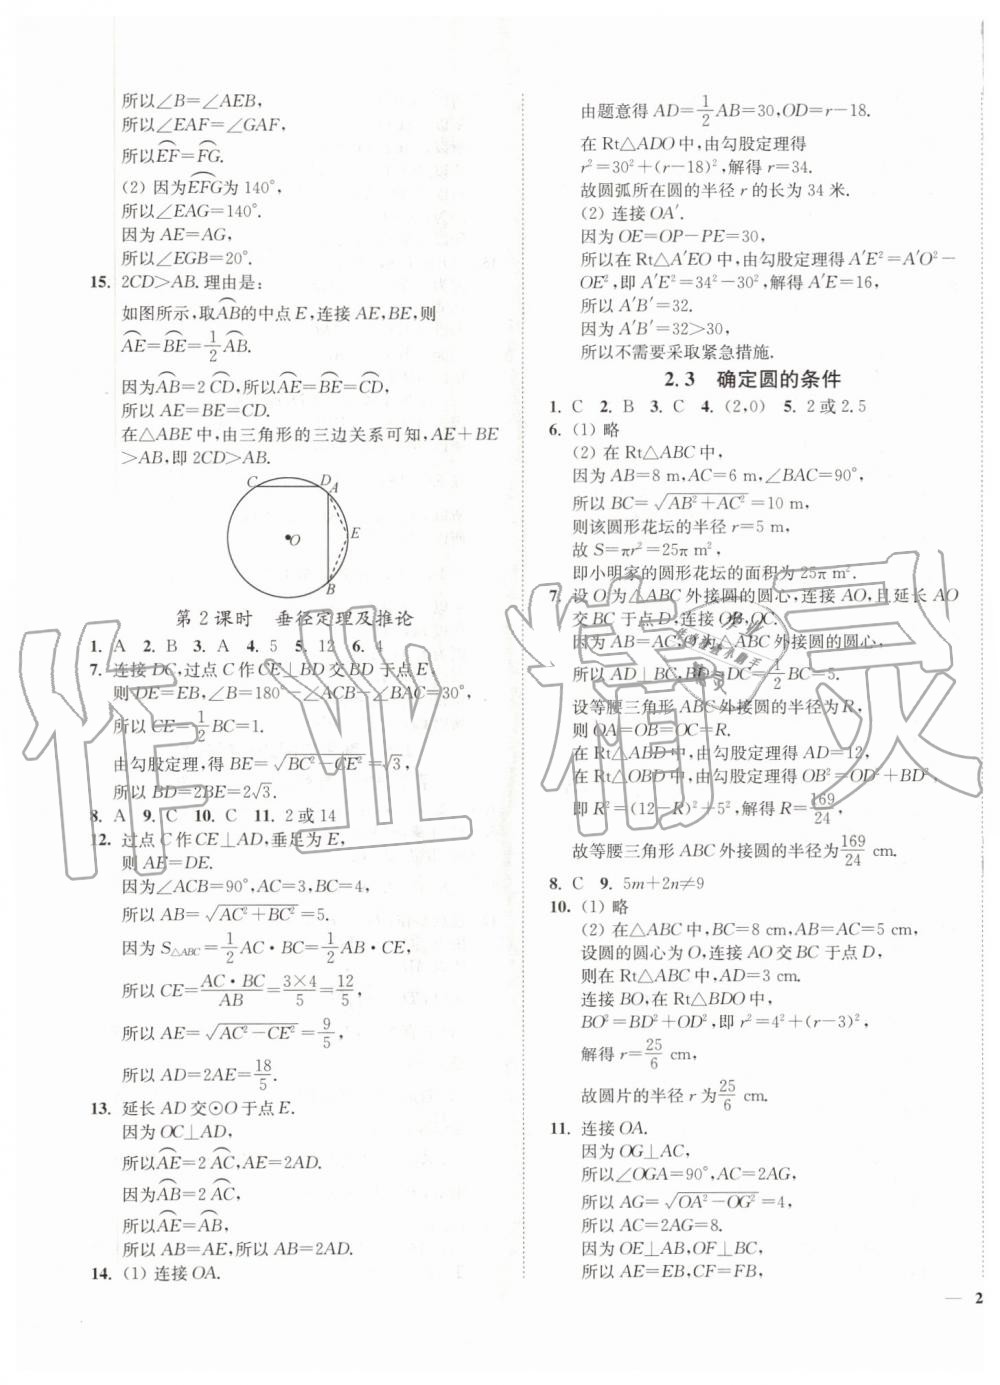 所以∠B=∠AEB,
所以∠EAF=∠GAF,
所以⌒EF=⌒FG.
(2) 因为⌒EFG为 140°,
所以∠EAG=140°.
因为 AE=AG,
所以∠EGB=20°.
15. 2CD>AB. 理由是:
如图所示,取⌒AB的中点 E,连接 AE,BE,则
⌒AE=⌒BE=1/2 ⌒AB.
因为⌒AB=2 ⌒CD,所以⌒AE=⌒BE=⌒CD,
所以 AE=BE=CD.
在△ABE 中,由三角形的三边关系可知,AE+BE
>AB,即 2CD>AB.
C D A O E B
第 2 课时 垂径定理及推论
1. A 2. B 3. A 4. 5 5. 12 6. 4
7. 连接 DC,过点 C 作 CE⊥BD 交 BD 于点 E,
则 DE=EB,∠B=180°-∠ACB-∠BAC=30°,
所以 CE=1/2 BC=1.
由勾股定理,得 BE=√(BC²-CE²)=√3,
所以 BD=2BE=2√3.
8. A 9. C 10. C 11. 2 或 14
12. 过点 C 作 CE⊥AD,垂足为 E,
则 AE=DE.
因为∠ACB=90°,AC=3,BC=4,
所以 AB=√(AC²+BC²)=5.
因为 S△ABC=1/2 AC·BC=1/2 AB·CE,
所以 CE=AC·BC/AB=3×4/5=12/5,
所以 AE=√(AC²-CE²)=9/5,
所以 AD=2AE=18/5.
13. 延长 AD 交⊙O 于点 E.
因为 OC⊥AD,
所以⌒AE=2 ⌒AC,AE=2AD.
因为⌒AB=2 ⌒AC,
所以⌒AE=⌒AB,
所以 AB=AE,所以 AB=2AD.
14. (1) 连接 OA.
由题意得 AD=1/2 AB=30,OD=r-18.
在 Rt△ADO 中,由勾股定理得
r²=30²+(r-18)²,解得 r=34.
故圆弧所在圆的半径 r 的长为 34 米.
(2) 连接 OA′.
因为 OE=OP-PE=30,
所以在 Rt△A′EO 中,由勾股定理得 A′E²=A′O²-
OE²,即 A′E²=34²-30²,解得 A′E=16,
所以 A′B′=32.
因为 A′B′=32>30,
所以不需要采取紧急措施.
2.3 确定圆的条件
1. C 2. B 3. C 4. (2,0) 5. 2 或 2.5
6. (1) 略
(2) 在 Rt△ABC 中,
因为 AB=8 m,AC=6 m,∠BAC=90°,
所以 BC=√(AB²+AC²)=10 m,
则该圆形花坛的半径 r=5 m,
故 S=πr²=25π m²,
即小明家的圆形花坛的面积为 25π m².
7. 设 O 为△ABC 外接圆的圆心,连接 AO,且延长 AO
交 BC 于点 D,连接 OB,OC.
因为 AB=AC,O 为△ABC 外接圆的圆心,
所以 AD⊥BC,BD=DC=1/2 BC=5.
设等腰三角形 ABC 外接圆的半径为 R,
则 OA=OB=OC=R.
在 Rt△ABD 中,由勾股定理得 AD=12,
在 Rt△OBD 中,由勾股定理得 OB²=OD²+BD²,
即 R²=(12-R)²+5²,解得 R=169/24,
故等腰三角形 ABC 外接圆的半径为169/24 cm.
8. C 9. 5m+2n≠9
10. (1) 略
(2) 在△ABC 中,BC=8 cm,AB=AC=5 cm,
设圆的圆心为 O,连接 AO 交 BC 于点 D,
则在 Rt△ABC 中,AD=3 cm.
连接 BO,在 Rt△BDO 中,
BO²=BD²+OD²,即 r²=4²+(r-3)²,
解得 r=25/6 cm,
故圆片的半径 r 为25/6 cm.
11. 连接 OA.
因为 OG⊥AC,
所以∠OGA=90°,AC=2AG,
所以 AG=√(OA²-OG²)=4,
所以 AC=2AG=8.
因为 OE⊥AB,OF⊥BC,
所以 AE=EB,CF=FB,
— 2
作业精灵